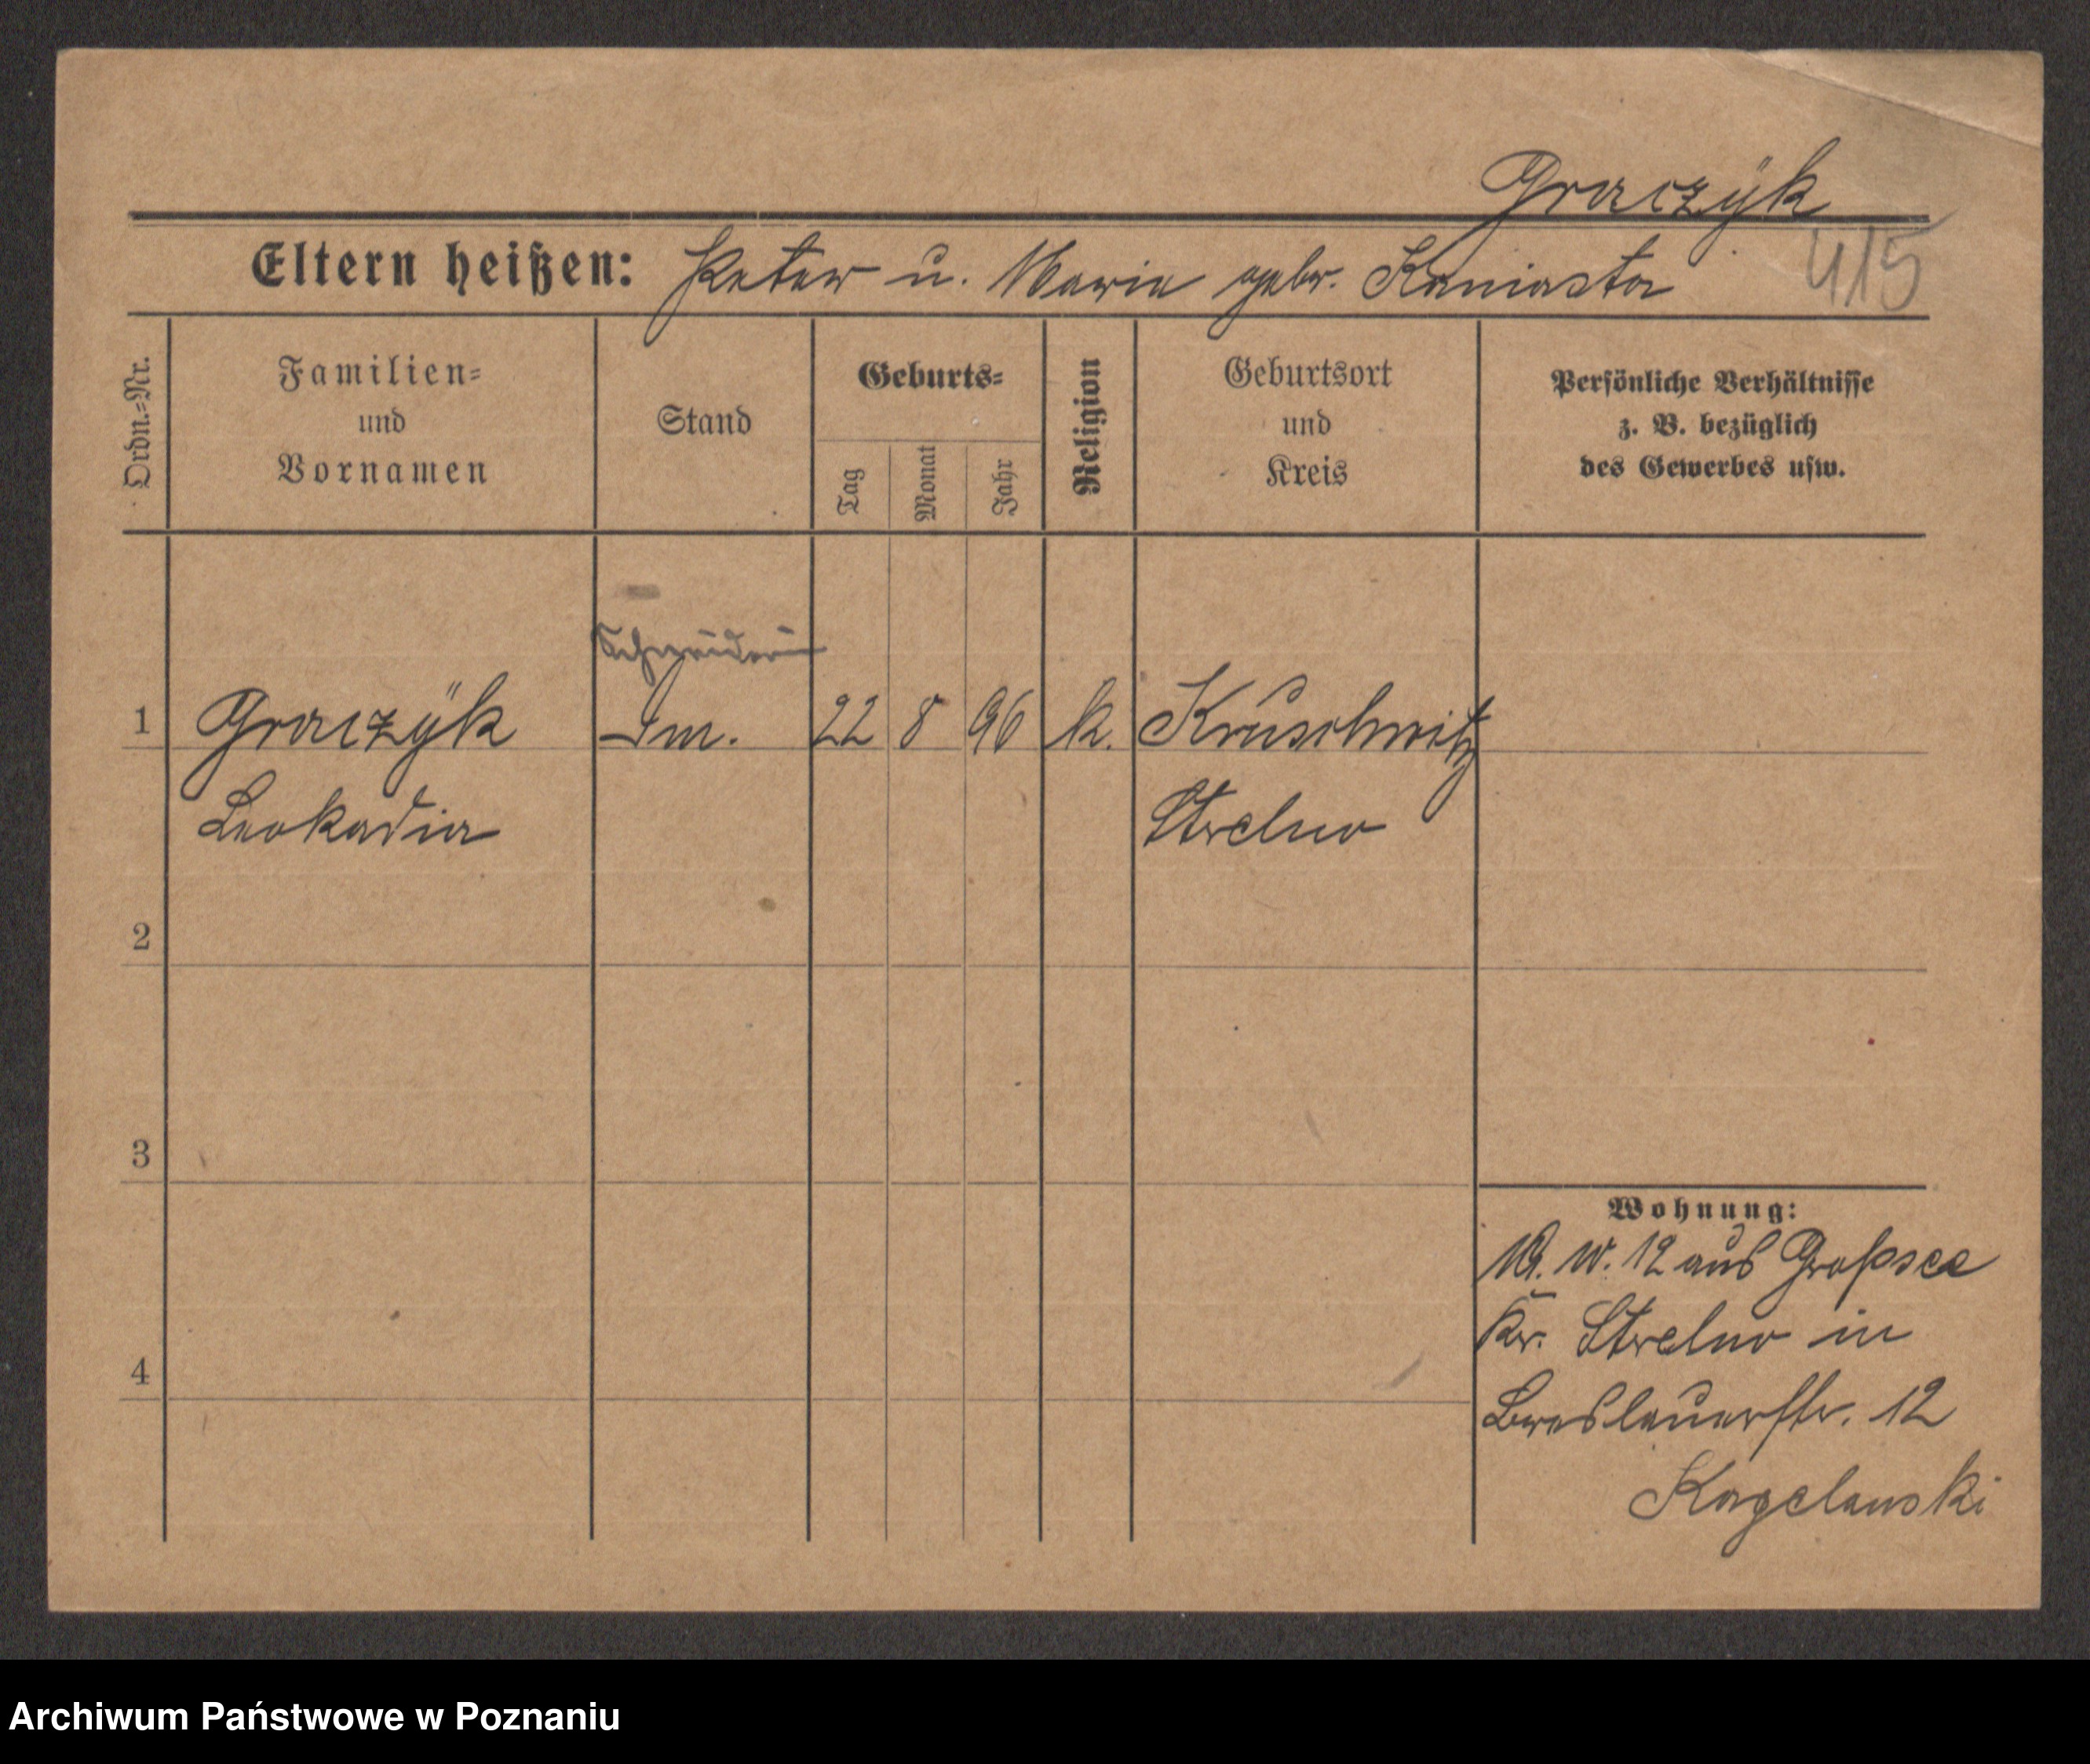 Graczÿk
Eltern heißen: Peter u. Maria gebr. Kaniasta
415
Ordn.=Nr.
Familien=
und
Vornamen
Stand
Geburts=
Tag
Monat
Jahr
Religion
Geburtsort
und
Kreis
Persönliche Verhältnisse
z. B. bezüglich
des Gewerbes usw.
Schneiderin
1 Graczÿk 22 8 96 k. Kruschwitz
Leokadia Strelno
2
3
4
Wohnung:
12 aus Großsee
Kr. Strelno in
Breslauerstr. 12
Archiwum Państwowe w Poznaniu